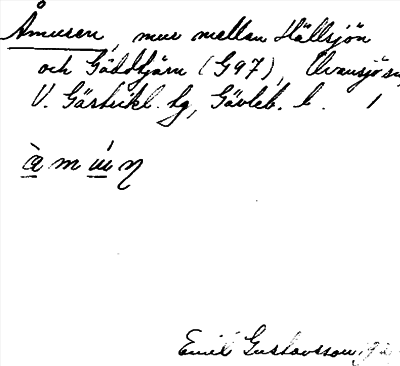 Åmuren, mur mellan Hällsjön
och Gäddtjärn (G97), Ovansjö sn,
V. Gästrikl. tg, Gävleb. l. 1
à m ú η
Emil Gustavsson